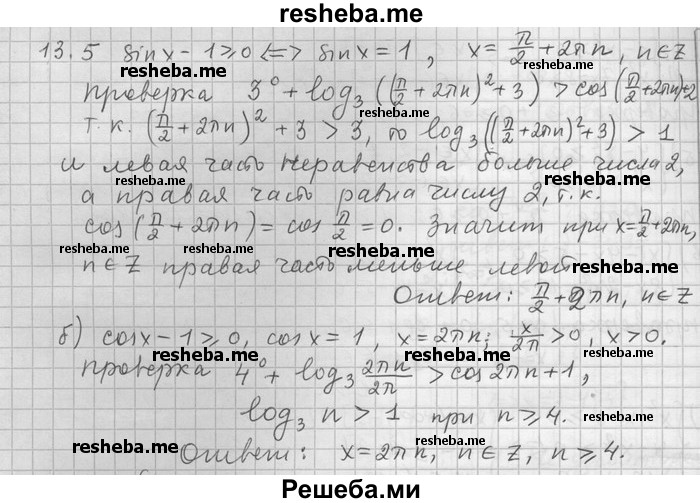 resheba.me
13.5 sin x - 1 ≥ 0 <=> sin x = 1, x = π/2 + 2πn, n∈Z
resheba.me resheba.me
Проверка 3⁰ + log₃((π/2 + 2πn)² + 3) > cos(π/2 + 2πn)+2
resheba.me
т.к. (π/2 + 2πn)² + 3 > 3, то log₃((π/2 + 2πn)² + 3) > 1
и левая часть неравенства больше числа 2,
resheba.me resheba.me
а правая часть равна числу 2, т.к.
cos(π/2 + 2πn) = cos π/2 = 0. Значит при x = π/2 + 2πn,
resheba.me resheba.me resheba.me
n∈Z правая часть меньше левой
Ответ: π/2 + 2πn, n∈Z
resheba.me
б) cos x - 1 ≥ 0, cos x = 1, x = 2πn; x/2π > 0, x > 0.
resheba.me resheba.me
Проверка 4⁰ + log₃ 2πn/2π > cos 2πn + 1,
log₃ n > 1 при n ≥ 4.
resheba.me
resheba.me resheba.me
Ответ: x = 2πn, n∈Z, n ≥ 4.
Решеба.ми